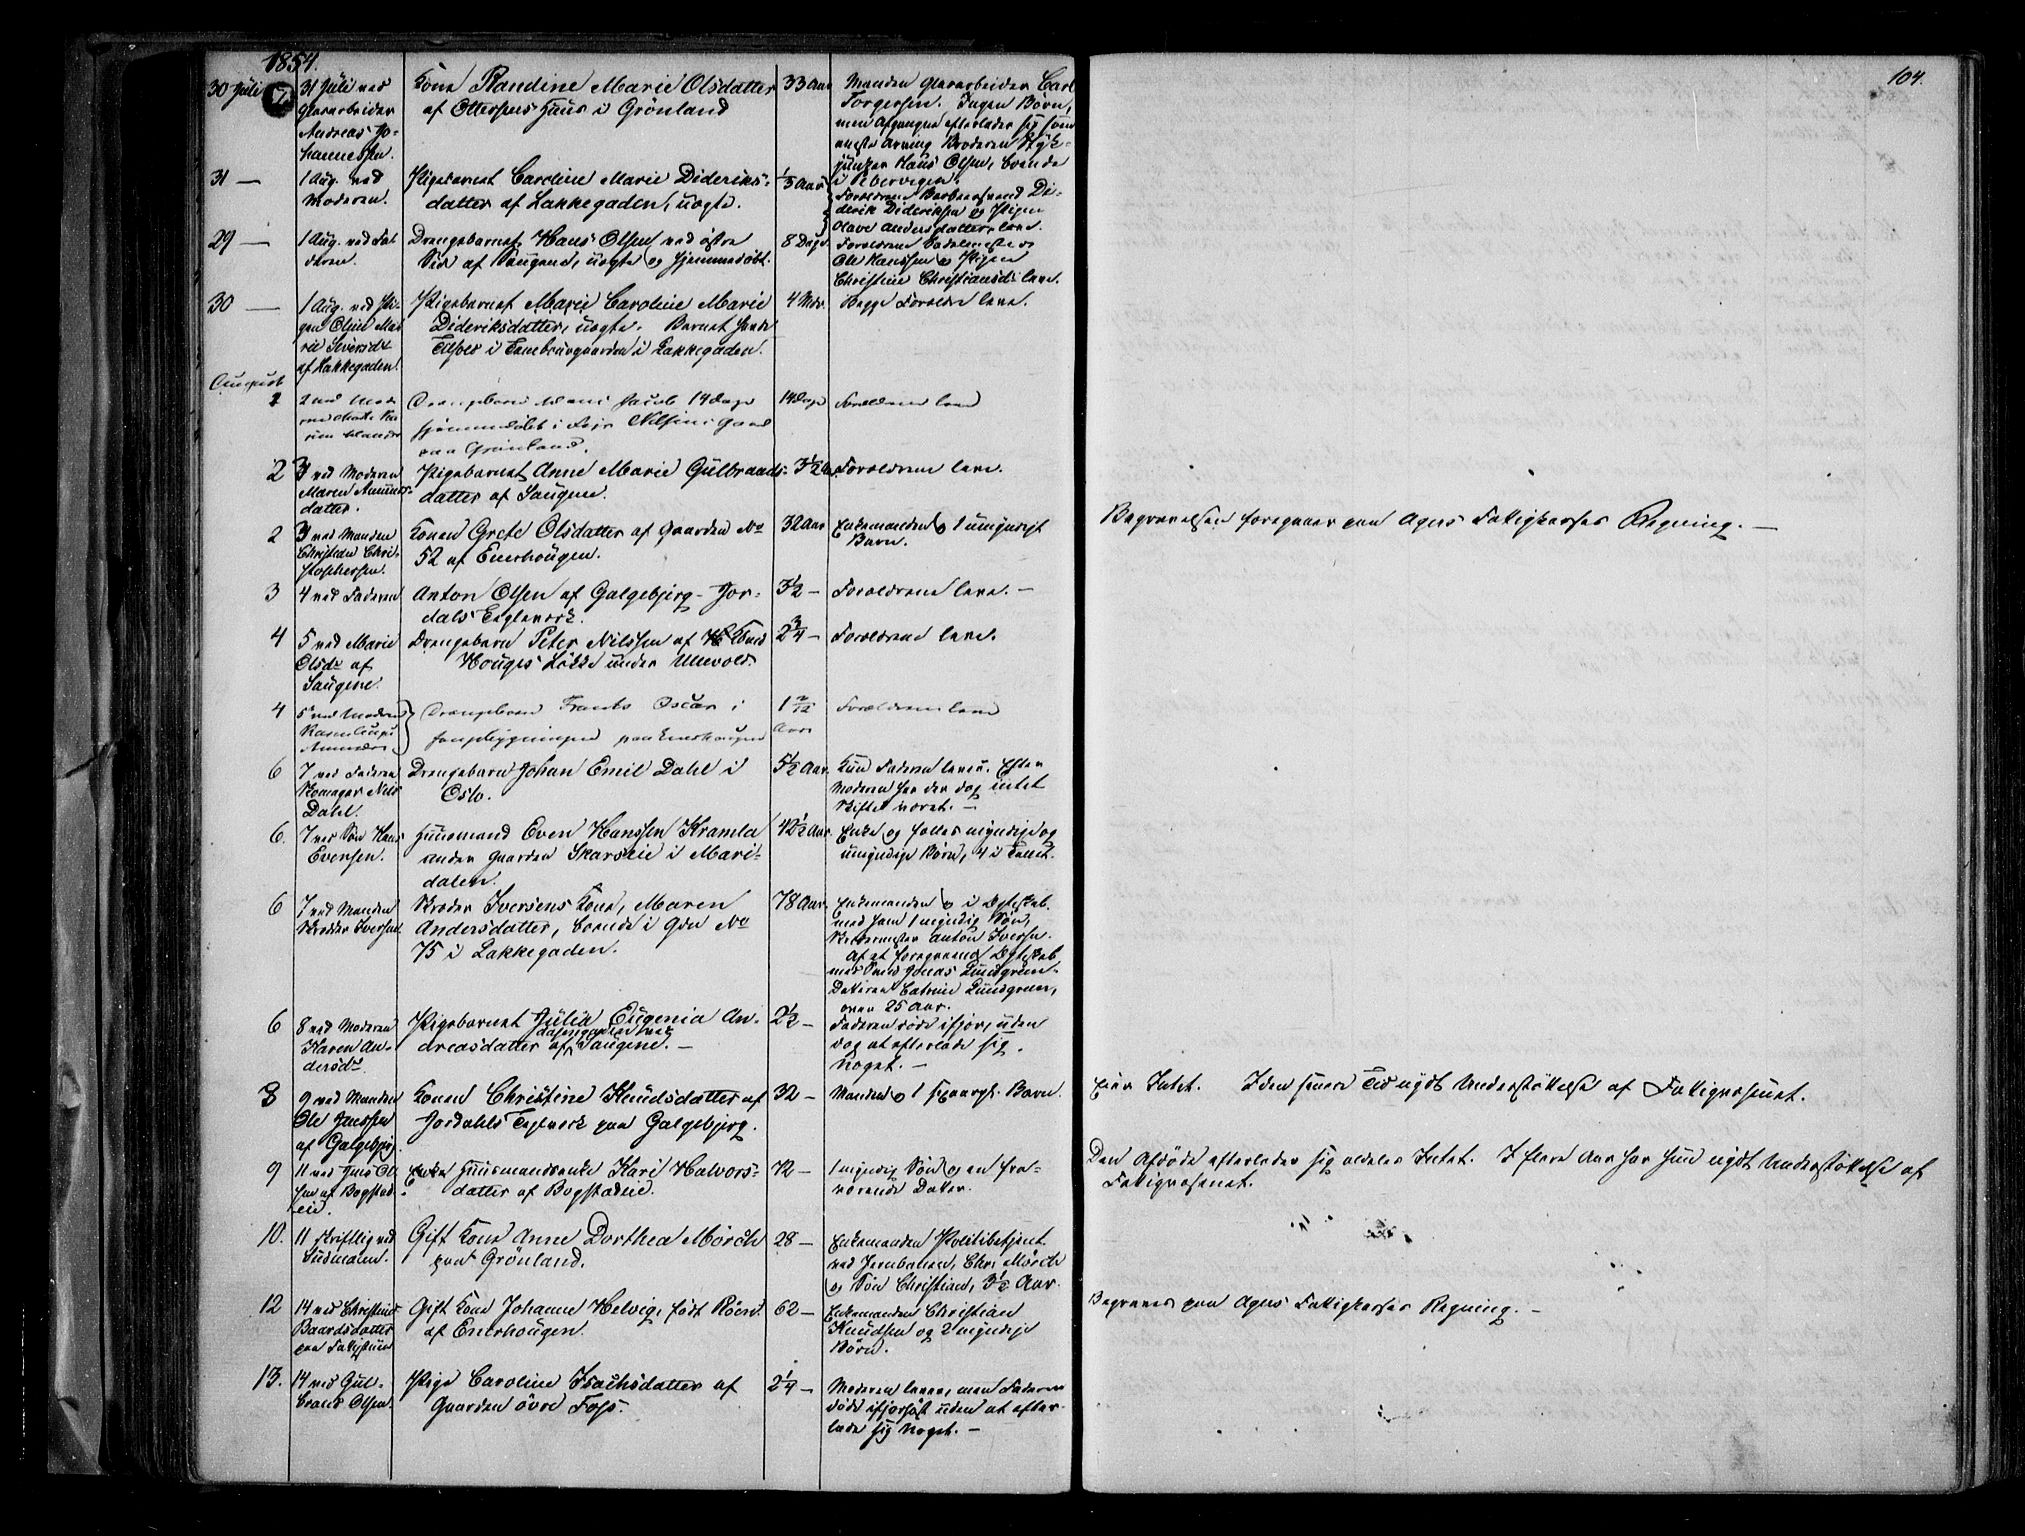 1854.
104.
30 Juli
31 Juli ved
Glasarbeider
Andreas Jo-
hannessen.
Kone Randine Marie Olsdatter
af Ottersens Huus i Grönland
33 Aar
Manden Glasarbeider Carl
Torgersen. Ingen Börn,
men Afgangne efterlader sig som
neste Arving Broderen Styk-
junker Hans Olsen, boende
i Pebervigen.
31 —
1 Aug. ved
Moderen.
Pigebarnet Caroline Marie Dideriks-
datter af Lakkegaden, uægte.
1/3 Aar
Forældrene Arbeidsmand Di-
derik Dideriksen og Pigen
Olave Andersdatter leve.
29 —
1 Aug. ved Fa-
deren.
Drengebarnet Hans Olsen ved östre
Side af Saugene, uægte og hjemmedöbt.
8 Dage
Forældrene
Ole Hanssen og Pigen
Christine Christiansd. leve.
30 —
1 Aug. ved Pi-
gen Oline Ma-
rie Siversdt
af Lakkegaden.
Pigebarnet Marie Caroline Marie
Dideriksdatter, uægte. Barnet havde
Tilhold i Tenebruggaarden i Lakkegaden.
4 Mdr.
Begge Forældre leve.
August
1
2 ved Mod
Drengebarn Jacob 14 Dage
hjemmedöbt i Nilsens Gaard
paa Grönland.
14 Dage
Forældrene leve
2
3 ved Moderen
Maren Amunds-
datter.
Pigebarnet Anne Marie Gulbrands-
datter af Saugene.
3 1/2 Aar
Forældrene leve.
2
3 ved Manden
Christian Chri-
stophersen.
Konen Grete Olsdatter af Gaarden No
52 af Enerhougen.
32 Aar
Enkemanden og 1 umyndigt
Barn.
Begravelsen foregaaer paa Agers Fattigkasses Regning. —
3
4 ved Faderen
Anton Olsen af Galgebjerg - Jor-
dals Teglverk.
3 1/2 —
Forældrene leve. —
4
5 ved Marie
Olsdr af
Saugene.
Drengebarn Peter Nilssen af
Houges Lökke under Ullevold.
2 3/4 —
Forældrene leve.
4
5 ved Moderen
Drengebarn Frants Oscar i
paa Enerhougen
1 2/12
Aar
Forældrene leve
6
7 ved Faderen
Skomager Nils
Dahl.
Drengebarn Johan Emil Dahl i
Oslo.
5 1/2 Aar.
Kun Faderen lever. Efter
Moderen har der dog intet
Skifte været. —
6.
7 ved Sön Hans
Evensen.
Huusmand Even Hanssen Kramla
under Gaarden Skarseie i Mari-
dalen.
42 1/2 Aar.
Enke og fælles myndige og
umyndige Börn, 4 i Tallet.
6
7 ved Manden
Skræder Iversen
Skræder Iversens Kone, Maren
Andersdatter, boende i Gdn No
75 i Lakkegaden.
78 Aar.
Enkemanden og i Ægteskab
med ham 1 myndig Sön,
Skrædermester Anton Iversen.
Af et foregaaende Ægteskab
med Svend Jonas Lundgreen
Datteren Catrine Lundgreen,
over 25 Aar.
6
8 ved Moderen
Karen An-
dersdr
Pigebarnet Julia Eugenia An-
dreasdatter af Saugene. —
2 1/2 —
Faderen döde ifjor, uden
dog at efterlade sig
Noget. —
8
9 ved Manden
Ole Jenssen
af Galgebjerg
Konen Christine Knudsdatter af
Jordahls Teglverk paa Galgebjerg.
32 —
Manden og 1 sexaarigt Barn.
Eier Intet. I den senere Tid nydt Understöttelse af Fattigvæsenet.
9
11 ved Jens Ol-
sen af Bogstad-
eie.
Enke Huusmandsenke Kari Halvors-
datter af Bogstadeie.
72 —
1 myndig Sön og en fra-
værende Datter.
Den Afdöde efterlader sig aldeles Intet. I flere Aar har hun nydt Understöttelse af
Fattigvæsenet.
10.
11 skriftlig ved
Budmanden.
Gift Kone Anne Dorthea Mörch
paa Grönland.
28 —
Enkemanden Politibetjent
ved Jernbanen, Chr. Mörch
og Sön Christian, 3 1/2 Aar.
12
14 ved Christine
Baardsdatter
paa Fattighuus
Gift Kone Johanne Helvig, födt Röen
af Enerhougen.
62 —
Enkemanden Christian
Knudsen og 2 myndige
Börn.
Begraves paa Agers Fattigkasses Regning. —
13.
14 ved Gul-
brand Olsen.
Pige Caroline Isachsdatter af
Gaarden övre Foss.
2 1/4 —
Moderen lever, men Faderen
döde ifjorhöst uden at efter-
lade sig Noget. —